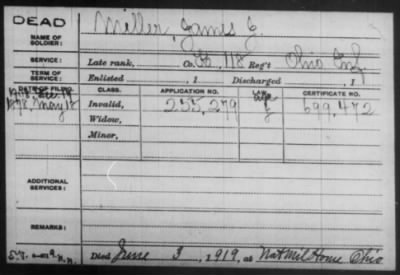 DEAD
NAME OF SOLDIER:
Miller, James
SERVICE:
Late rank, Co. 118 Reg't Ohio Inf.
TERM OF SERVICE:
Enlisted , 1 Discharged , 1
DATE OF FILING. CLASS. APPLICATION NO. LAW. CERTIFICATE NO.
1878, May 18 Invalid, 255,279 699,472
Widow,
Minor,
ADDITIONAL SERVICES:
REMARKS:
Died June 3, 1919, at Nat Mil Home Ohio